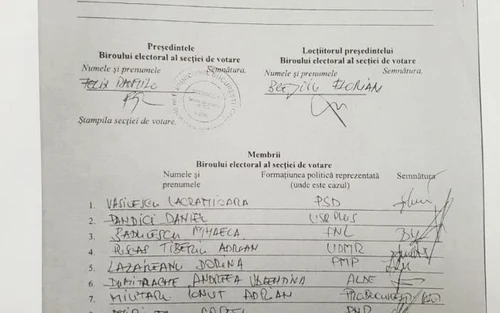 Președintele
Biroului electoral al secției de votare
Numele și prenumele Semnătura.
Ștampila secției de votare.
Locțiitorul președintelui
Biroului electoral al secției de votare
Numele și prenumele Semnătura.
FLORIAN
Membrii
Biroului electoral al secției de votare
Numele și prenumele Formațiunea politică reprezentată (unde este cazul) Semnătura
1. VASILESCU LACRAMIOARA PSD
2. PANDICI DANIEL USR PLUS
3. RADULESCU MIHAELA PNL
4. TIBERIU ADRIAN UDMR
5. LAZAREANU DORINA PMP
6. DUMITRACHE ANDREEA VALENTINA ALDE
7. MILITARU IONUT ADRIAN
8.